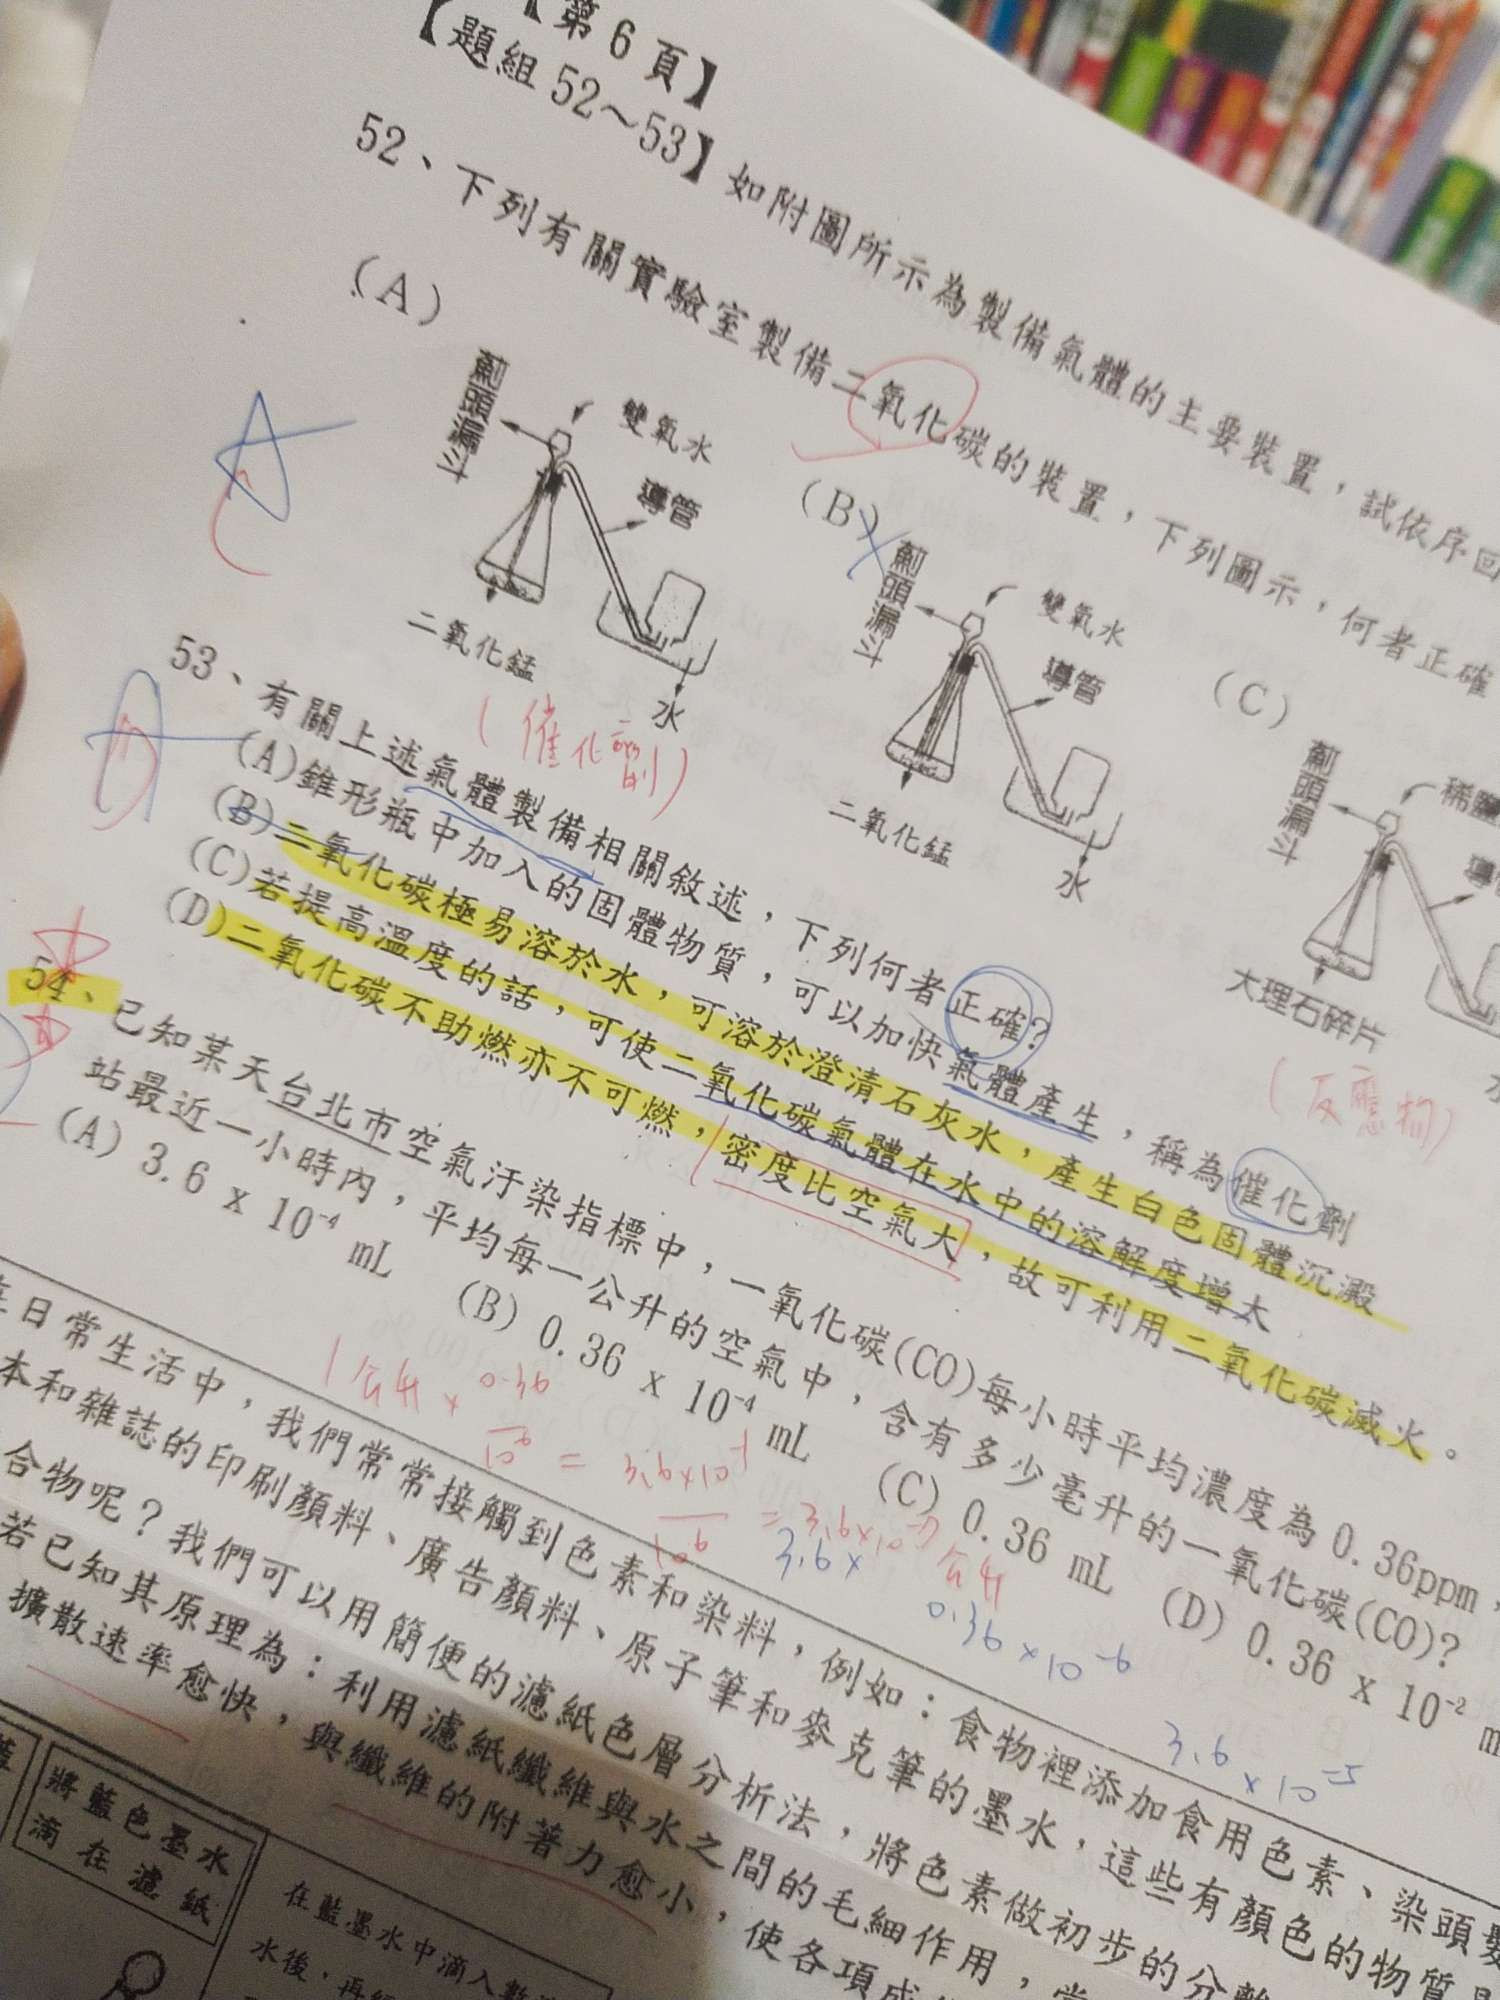 【第6頁】
【題組 52~53】如附圖所示為製備氣體的主要裝置，試依序回
52、下列有關實驗室製備二氧化碳的裝置，下列圖示，何者正確
(A)
薊頭漏斗
雙氧水
導管
二氧化錳
水
(B)
薊頭漏斗
雙氧水
導管
二氧化錳
水
(C)
薊頭漏斗
稀鹽
導管
大理石碎片
水
(催化劑)
(反應物)
53、有關上述氣體製備相關敘述，下列何者正確?
(A)錐形瓶中加入的固體物質，可以加快氣體產生，稱為催化劑
(B)二氧化碳極易溶於水，可溶於澄清石灰水，產生白色固體沉澱
(C)若提高溫度的話，可使二氧化碳氣體在水中的溶解度增大
(D)二氧化碳不助燃亦不可燃，密度比空氣大，故可利用二氧化碳滅火。
54、已知某天台北市空氣汙染指標中，一氧化碳(CO)每小時平均濃度為 0.36ppm，
站最近一小時內，平均每一公升的空氣中，含有多少毫升的一氧化碳(CO)?
(A) 3.6 x 10⁻⁴ mL (B) 0.36 x 10⁻⁴ mL (C) 0.36 mL (D) 0.36 x 10⁻² m
1公升 × 0.36 / 10⁶ = 3.6×10⁻¹ / 10⁶ = 3.6×10⁻⁷ 公升
3.6×
0.36×10⁻⁶
3.6×10⁻⁵
在日常生活中，我們常常接觸到色素和染料，例如：食物裡添加食用色素、染頭髮
本和雜誌的印刷顏料、廣告顏料、原子筆和麥克筆的墨水，這些有顏色的物質
合物呢？我們可以用簡便的濾紙色層分析法，將色素做初步的分離
若已知其原理為：利用濾紙纖維與水之間的毛細作用，
擴散速率愈快，與纖維的附著力愈小，使各項成
將藍色墨水
滴在濾紙
在藍墨水中滴入數
水後，再